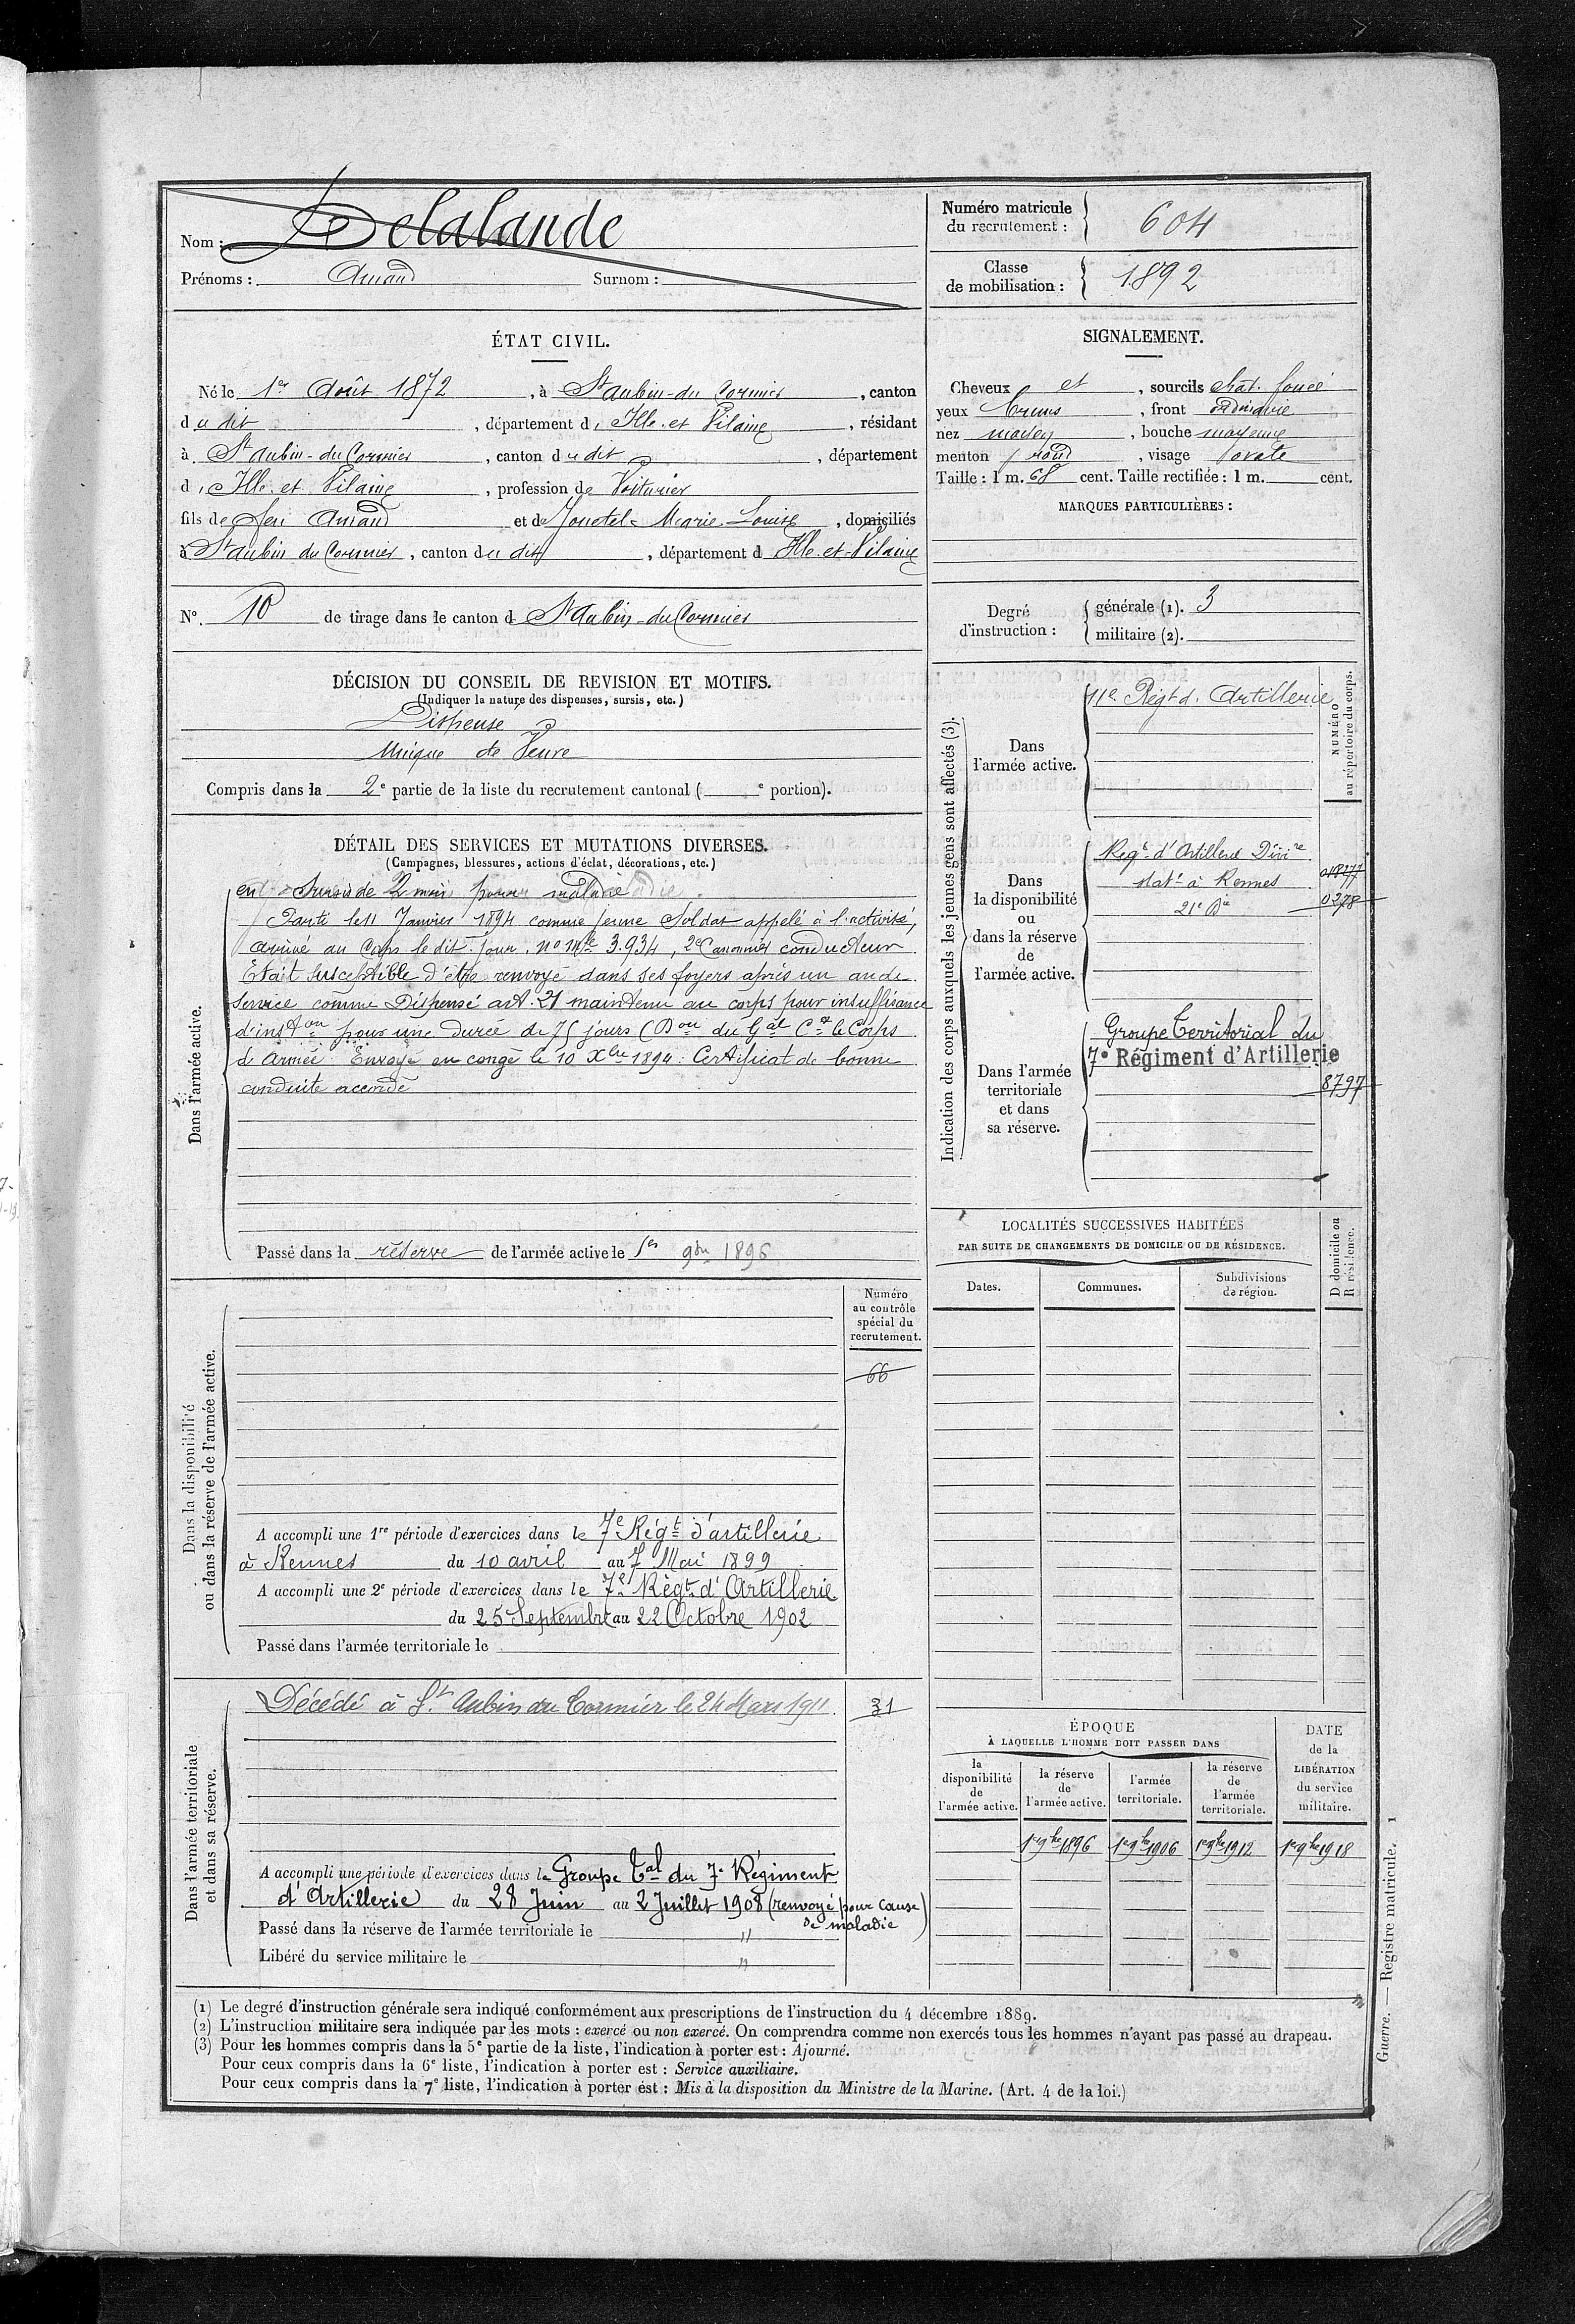 Nom : Delalande
Prénoms : Amand Surnom :
Numéro matricule
du recrutement : 604
Classe
de mobilisation : 1892
ÉTAT CIVIL.
Né le 1er Août 1872, à St Aubin-du Cormier, canton
du dit, département d'Ille et Vilaine, résidant
à St Aubin-du Cormier, canton du dit, département
d'Ille et Vilaine, profession de Voiturier
fils de feu Amand et de Marie Louise, domiciliés
à St Aubin du Cormier, canton du dit, département d Ille-et-Vilaine
No. 10 de tirage dans le canton d St Aubin-du Cormier
SIGNALEMENT.
Cheveux et, sourcils chât. foncé
yeux bruns, front ordinaire
nez moyen, bouche moyenne
menton rond, visage ovale
Taille : 1 m. 68 cent. Taille rectifiée : 1 m. cent.
MARQUES PARTICULIÈRES :
Degré
d'instruction :
générale (1). 3
militaire (2).
DÉCISION DU CONSEIL DE REVISION ET MOTIFS.
(Indiquer la nature des dispenses, sursis, etc.)
Dispensé
Unique de Veuve
Compris dans la 2e partie de la liste du recrutement cantonal ( e portion).
DÉTAIL DES SERVICES ET MUTATIONS DIVERSES.
(Campagnes, blessures, actions d'éclat, décorations, etc.)
Dans l'armée active.
en Sursis de 2 mois pour maladie
Parti le 11 Janvier 1894 comme jeune Soldat appelé à l'activité,
arrivé au Corps le dit jour. No Mle 3.934, 2e Canonnier conducteur
Était susceptible d'être renvoyé dans ses foyers après un an de
service comme Dispensé art. 21 maintenu au corps pour insuffisance
d'inston pour une durée de 75 jours (Don du Gal Ct le Corps
d'Armée. Envoyé en congé le 10 Xbre 1894. Certificat de bonne
conduite accordé
Passé dans la réserve de l'armée active le 1er 9bre 1896
Indication des corps auxquels les jeunes gens sont affectés (3).
NUMÉRO
au répertoire du corps.
Dans
l'armée active.
11e Régt d'Artillerie
Dans
la disponibilité
ou
dans la réserve
de
l'armée active.
Régt d'Artillerie Divre
statt à Rennes
21e Bie
0278
Dans l'armée
territoriale
et dans
sa réserve.
Groupe Territorial du
7e Régiment d'Artillerie
8797
LOCALITÉS SUCCESSIVES HABITÉES
PAR SUITE DE CHANGEMENTS DE DOMICILE OU DE RÉSIDENCE.
Dates. Communes. Subdivisions
de région.
D domicile ou
R résidence.
Dans la disponibilité
ou dans la réserve de l'armée active.
Numéro
au contrôle
spécial du
recrutement.
66
A accompli une 1re période d'exercices dans le 7e Régt d'artillerie
à Rennes du 10 avril au 7 Mai 1899
A accompli une 2e période d'exercices dans le 7e Régt d'Artillerie
du 25 Septembre au 22 Octobre 1902
Passé dans l'armée territoriale le
Dans l'armée territoriale
et dans sa réserve.
Décédé à St Aubin du Cormier le 24 Mars 1911. 31
A accompli une période d'exercices dans le Groupe Tal du 7e Régiment
d'Artillerie du 28 Juin au 2 Juillet 1908 (renvoyé pour cause
de maladie)
Passé dans la réserve de l'armée territoriale le "
Libéré du service militaire le "
ÉPOQUE
À LAQUELLE L'HOMME DOIT PASSER DANS
la
disponibilité
de
l'armée active.
la réserve
de
l'armée active.
l'armée
territoriale.
la réserve
de
l'armée
territoriale.
DATE
de la
LIBÉRATION
du service
militaire.
1er 9bre 1896 1er 9bre 1906 1er 9bre 1912 1er 9bre 1918
(1) Le degré d'instruction générale sera indiqué conformément aux prescriptions de l'instruction du 4 décembre 1889.
(2) L'instruction militaire sera indiquée par les mots : exercé ou non exercé. On comprendra comme non exercés tous les hommes n'ayant pas passé au drapeau.
(3) Pour les hommes compris dans la 5e partie de la liste, l'indication à porter est : Ajourné.
Pour ceux compris dans la 6e liste, l'indication à porter est : Service auxiliaire.
Pour ceux compris dans la 7e liste, l'indication à porter est : Mis à la disposition du Ministre de la Marine. (Art. 4 de la loi.)
Guerre. — Registre matricule. 1